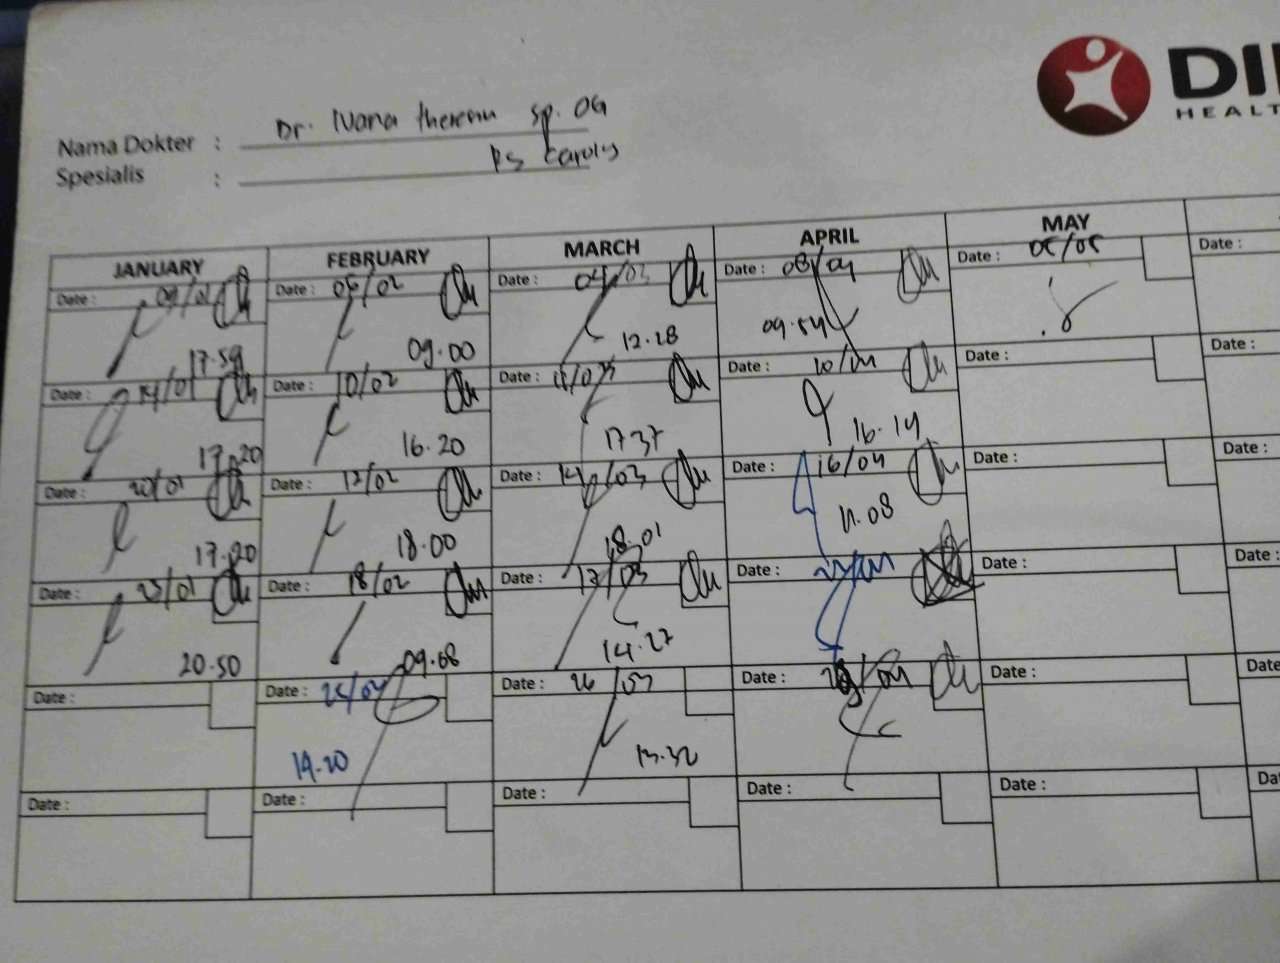 DI
HEALT
Nama Dokter : Dr. Ivana sp. OG
Spesialis : RS Carolus
JANUARY FEBRUARY MARCH APRIL MAY
Date : 09/01 Date : 05/02 Date : 04/03 Date : 08/04 Date : 05/05 Date :
17.59 09.00 12.28 09.54
Date : 14/01 Date : 10/02 Date : 11/03 Date : 10/04 Date : Date :
17.20 16.20 17.37 16.14
Date : 20/01 Date : 12/02 Date : 14/03 Date : 16/04 Date : Date :
17.20 18.00 18.01 11.08
Date : 23/01 Date : 18/02 Date : 17/03 Date : Date : Date :
20.50 09.08 14.27
Date : Date : 25/02 Date : 26/03 Date : Date : Date
14.20 13.32
Date : Date : Date : Date : Date : Da